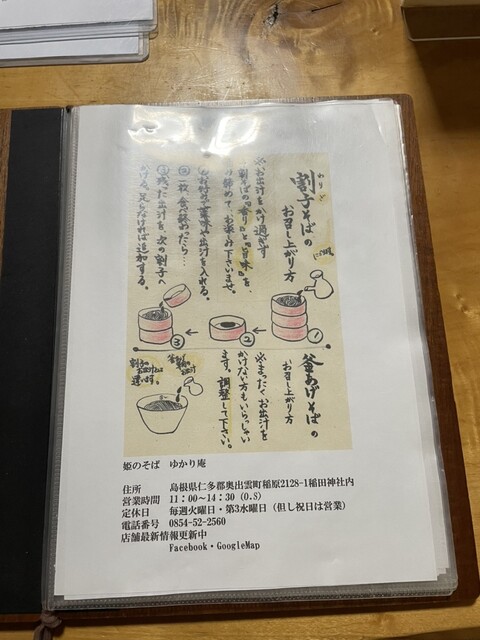 割子そばの
わりご
お召し上がり方
※お出汁をかけ過ぎず
割そばの『香り』と『旨味』を
め、お楽しみ下さいませ。
①お好みで薬味や出汁を入れる。
②一枚食べ終めたら…
③残った出汁を、次の割子へ
かける。足らなければ追加する。
①
②
③
釜あげそばの
お召し上がり方
※まったくお出汁を
かけない方もいらっしゃい
ます。調整して下さい。
割子の
お出汁とは
違います。
姫のそば ゆかり庵
住所 島根県仁多郡奥出雲町稲原2128-1稲田神社内
営業時間 11:00~14:30（O.S）
定休日 毎週火曜日・第3水曜日（但し祝日は営業）
電話番号 0854-52-2560
店舗最新情報更新中
Facebook・GoogleMap